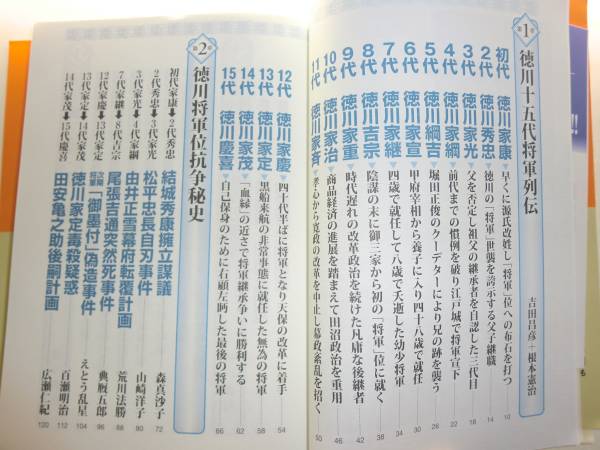 第1章 徳川十五代将軍列伝
吉田昌彦+根本憲治
初代 徳川家康 早くに源氏改姓し「将軍」位への布石を打つ 10
2代 徳川秀忠 徳川の「将軍」世襲を誇示する父子継職 14
3代 徳川家光 父を否定し祖父の継承者を自認した三代目 18
4代 徳川家綱 前代までの慣例を破り江戸城で将軍宣下 22
5代 徳川綱吉 堀田正俊のクーデターにより兄の跡を襲う 26
6代 徳川家宣 甲府宰相から養子に入り四十八歳で就任 30
7代 徳川家継 四歳で就任して八歳で夭逝した幼少将軍 34
8代 徳川吉宗 陰謀の末に御三家から初の「将軍」位に就く 38
9代 徳川家重 時代遅れの改革政治を続けた凡庸な後継者 42
10代 徳川家治 商品経済の進展を踏まえて田沼政治を重用 46
11代 徳川家斉 孝心から寛政の改革を中止し幕政紊乱を招く 50
12代 徳川家慶 四十代半ばに将軍となり天保の改革に着手 54
13代 徳川家定 黒船来航の非常事態に就任した無為の将軍 58
14代 徳川家茂 「血縁」の近さで将軍継承争いに勝利する 62
15代 徳川慶喜 自己保身のために右顧左眄した最後の将軍 66
第2章 徳川将軍位抗争秘史
初代家康➡2代秀忠 結城秀康擁立謀議 森真沙子 72
2代秀忠➡3代家光 松平忠長自刃事件 山崎洋子 80
3代家光➡4代家綱 由井正雪幕府転覆計画 荒川法勝 88
7代家継➡8代吉宗 尾張吉通突然死事件 典厩五郎 96
12代家慶➡13代家定 次期将軍「御墨付」偽造事件 えとう乱星 104
13代家定➡14代家茂 徳川家定毒殺疑惑 百瀬明治 112
14代家茂➡15代慶喜 田安亀之助後嗣計画 広瀬仁紀 120